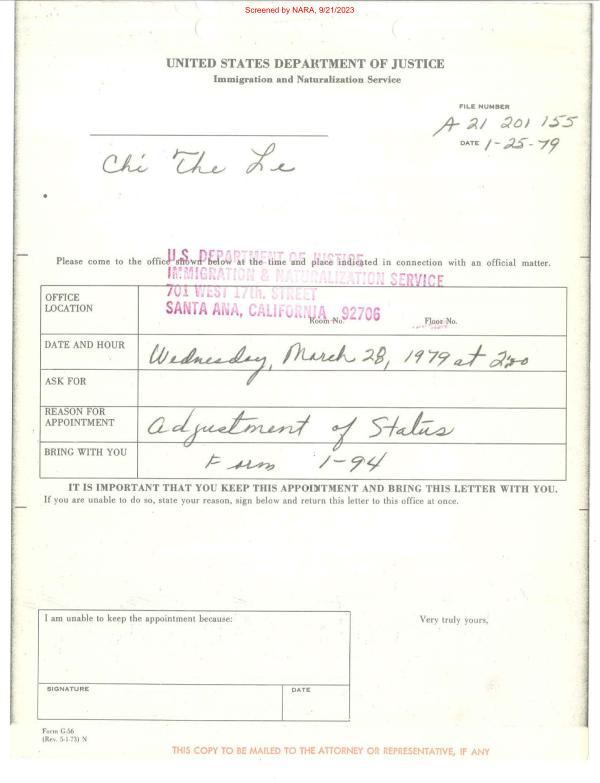 Screened by NARA, 9/21/2023
UNITED STATES DEPARTMENT OF JUSTICE
Immigration and Naturalization Service
FILE NUMBER
A 21 201 155
DATE 1-25-79
Chi The Le
Please come to the office shown below at the time and place indicated in connection with an official matter.
U.S. DEPARTMENT OF JUSTICE
IMMIGRATION & NATURALIZATION SERVICE
701 WEST 17th. STREET
SANTA ANA, CALIFORNIA 92706
OFFICE LOCATION
Room No. Floor No.
DATE AND HOUR
Wednesday, March 28, 1979 at 2:00
ASK FOR
REASON FOR APPOINTMENT
Adjustment of Status
BRING WITH YOU
Form I-94
IT IS IMPORTANT THAT YOU KEEP THIS APPOINTMENT AND BRING THIS LETTER WITH YOU.
If you are unable to do so, state your reason, sign below and return this letter to this office at once.
I am unable to keep the appointment because:
Very truly yours,
SIGNATURE
DATE
Form G-56
(Rev. 5-1-73) N
THIS COPY TO BE MAILED TO THE ATTORNEY OR REPRESENTATIVE, IF ANY